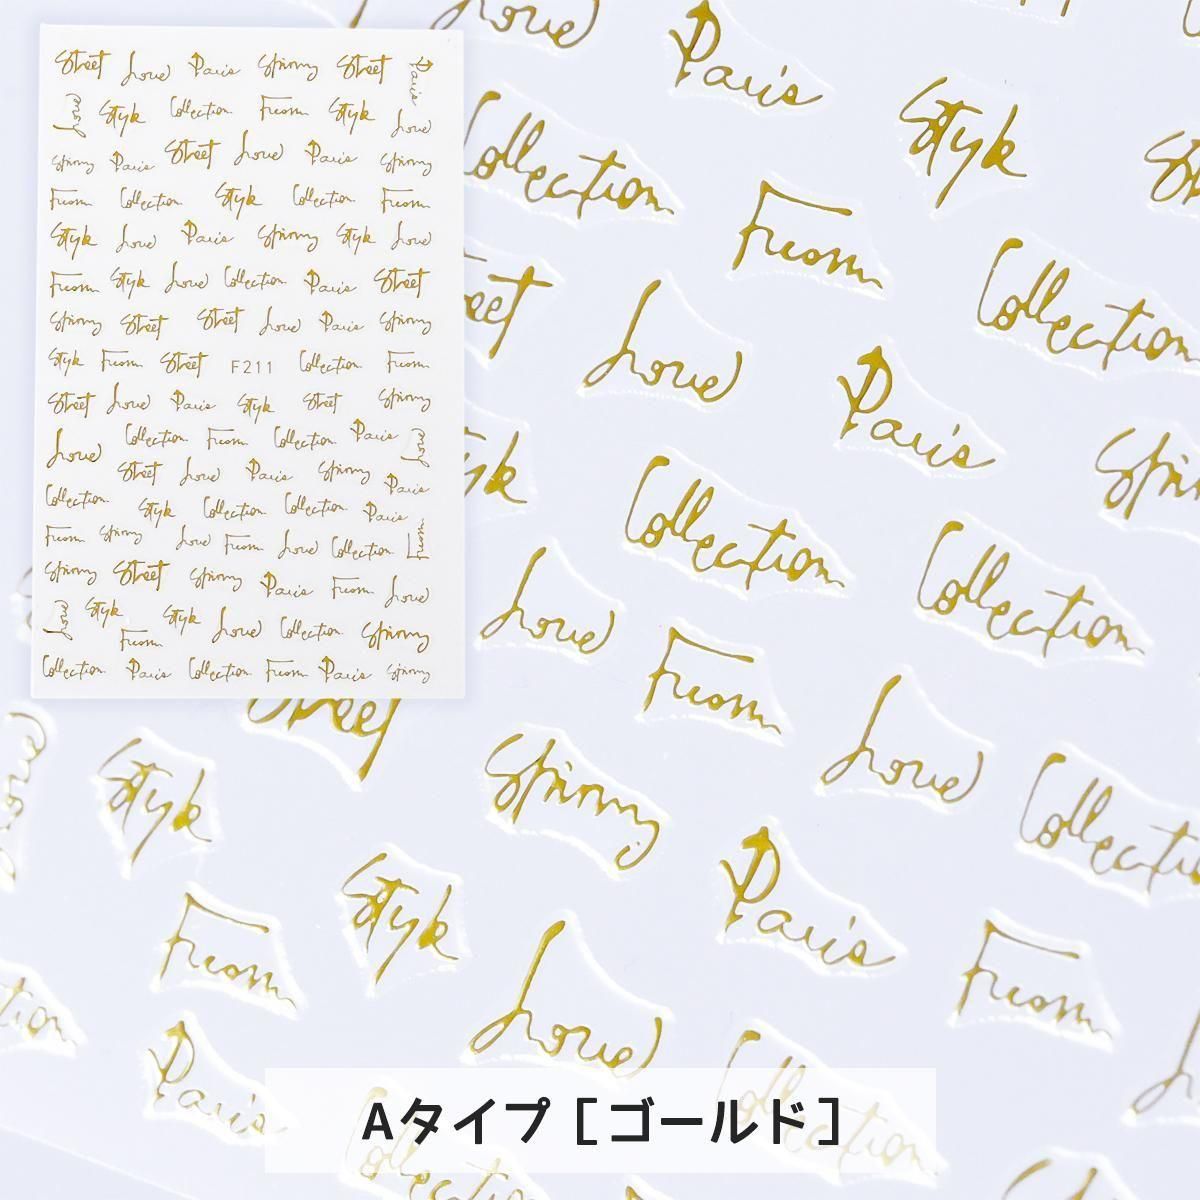 Street Love Paris Spinny Street Paris
Love Style Collection From Style Love
Spinny Paris Street Love Paris Spinny
From Collection Style Collection From
Style Love Paris Spinny Style Love
From Style Love Collection Paris Street
Spinny Street Street Love Paris Spinny
Style From Street F211 Collection From
Street Love Paris Style Street Spinny
Love Collection From Collection Paris Love
Street Love Paris Spinny Paris
Collection Style Collection Collection Paris
From Spinny Love From Love Collection From
Spinny Street Spinny Paris From Love
Love Style From Style Love Collection Spinny
Collection Paris Collection From Paris Spinny
Love Paris Style
Collection From Collection
Street Love Paris
Style Collection Collection
Love From Love Collection
Street Spinny Paris From
Style Style Love
From Paris
Collection
Aタイプ［ゴールド］